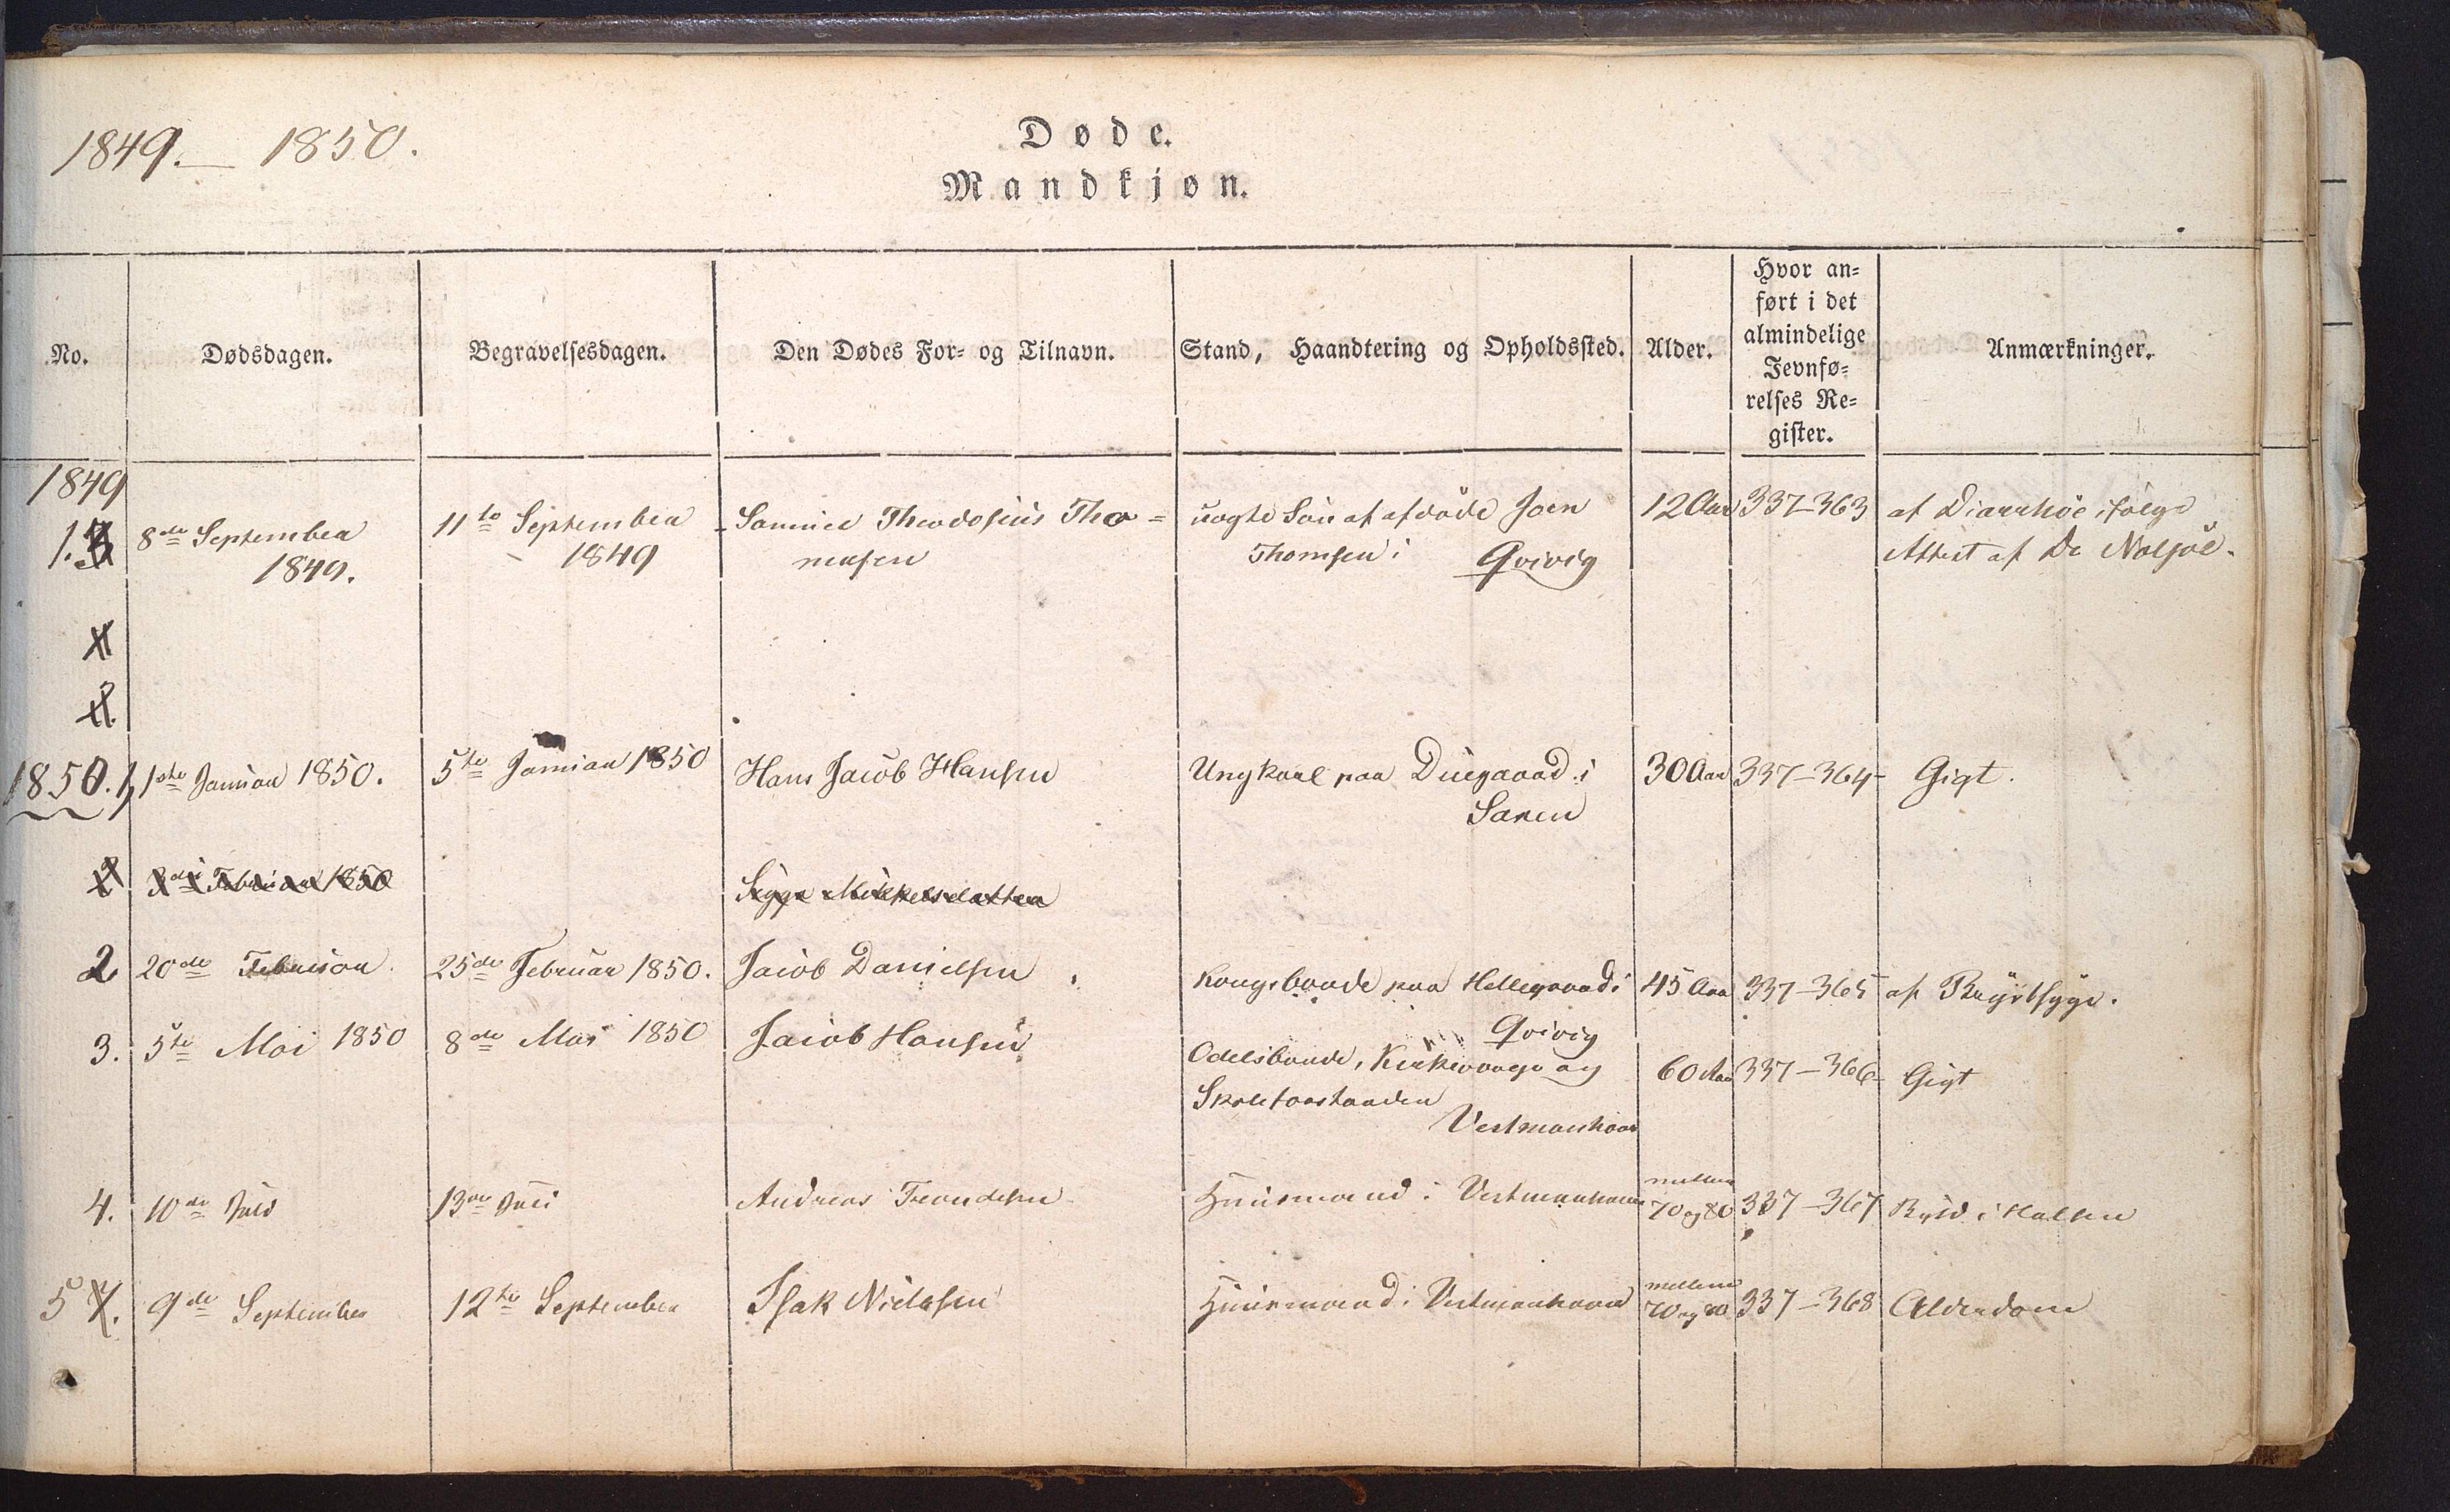 1849. — 1850.
Døde.
Mandkjøn.
No.
Dødsdagen.
Begravelsesdagen.
Den Dødes For- og Tilnavn.
Stand, Haandtering og Opholdssted.
Alder.
Hvor an-
ført i det
almindelige
Jevnfø-
relses Re-
gister.
Anmærkninger.
1849
1.
8de September
1849.
11te September
1849
Samuel Theodosius Tho=
masen
uægte Søn af afdøde Joen
Thomsen i Qvivig
12 Aar
337-363
af Diarrhöe ifølge
Attest af Dr Nolsöe.
1850. 1,
1ste Januar 1850.
5te Januar 1850
Hans Jacob Hansen
Ungkarl paa Duegaard i
Saxen
30 Aar
337-364
Gigt.
2
3die Februar 1850
Sigga Mikkelsdatter
2
20de Februar.
25de Februar 1850.
Jacob Danielsen
Kongsbonde paa Hellegaard i
Qvivig
45 Aar
337-365
af Brystsyge.
3.
5te Mai 1850
8de Mai 1850
Jacob Hansen
Odelsbonde, Kirkeværge og
Skoleforstander
Vestmanhavn
60 Aar
337-366
Gigt
4.
10de Juli
13de Juli
Andreas Trondesen
Huusmand i Vestmanhavn
mellem
70 og 80
337-367
Byld i Halsen
5
9de September
12te September
Isak Nielsen
Huusmand i Vestmanhavn
mellem
70 og 80
337-368
Alderdom